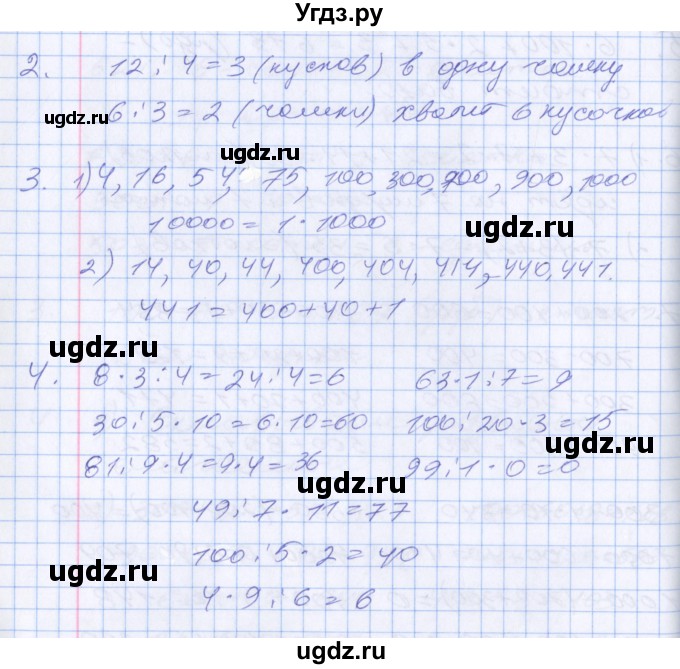 Угдз.ру
2. 12 : 4 = 3 (кусков) в одну чашку
ugdz.ru 6 : 3 = 2 (чашки) хватит 6 кусочков
ugdz.ru
3. 1) 4, 16, 54, 75, 100, 300, 700, 900, 1000
10000 = 1 · 1000
ugdz.ru
2) 14, 40, 44, 400, 404, 414, 440, 441.
441 = 400 + 40 + 1
ugdz.ru
4. 8 · 3 : 4 = 24 : 4 = 6 63 · 1 : 7 = 9
30 : 5 · 10 = 6 · 10 = 60 100 : 20 · 3 = 15
ugdz.ru
81 : 9 · 4 = 9 · 4 = 36 99 : 1 · 0 = 0
ugdz.ru
49 : 7 · 11 = 77
100 : 5 · 2 = 40
ugdz.ru
4 · 9 : 6 = 6
ugdz.ru